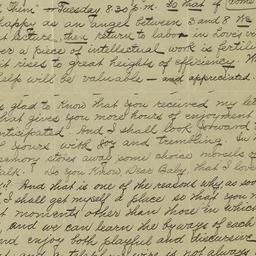 Thim" - Tuesday 8:30 p.m. So that if come
happy as an angel between 3 and 8 We
at lecture, then return to labor in Love's vi
er a piece of intellectual work is fertili
it rises to great heights of efficiency. W
elp will be valuable - and appreciated
s glad to know that you received my let
that gives you more hours of enjoyment
anticipated. And I shall look forward t
yours with joy and trembling. In
memory stored away some choice morsels o
talk. Do You Know, Dear Baby, that I lov
? And that is one of the reasons why, as soo
I shall get myself a place so that you m
at moments other than those in which
, and we can learn the byways of each
and enjoy both playful and discursive
is not always